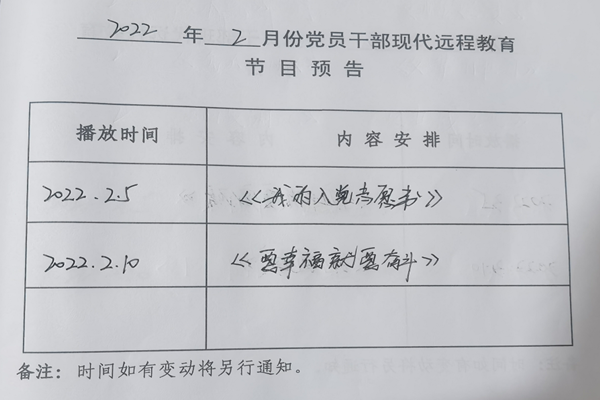 2022年2月份党员干部现代远程教育
节目预告
播放时间 内容安排
2022.2.5 《我的入党志愿书》
2022.2.10 《要幸福就要奋斗》
备注：时间如有变动将另行通知。